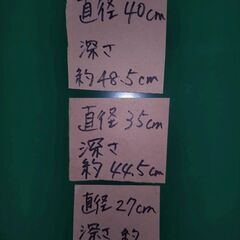 直径40cm
深さ
約48.5cm
直径35cm
深さ
約44.5cm
直径27cm
深さ 約